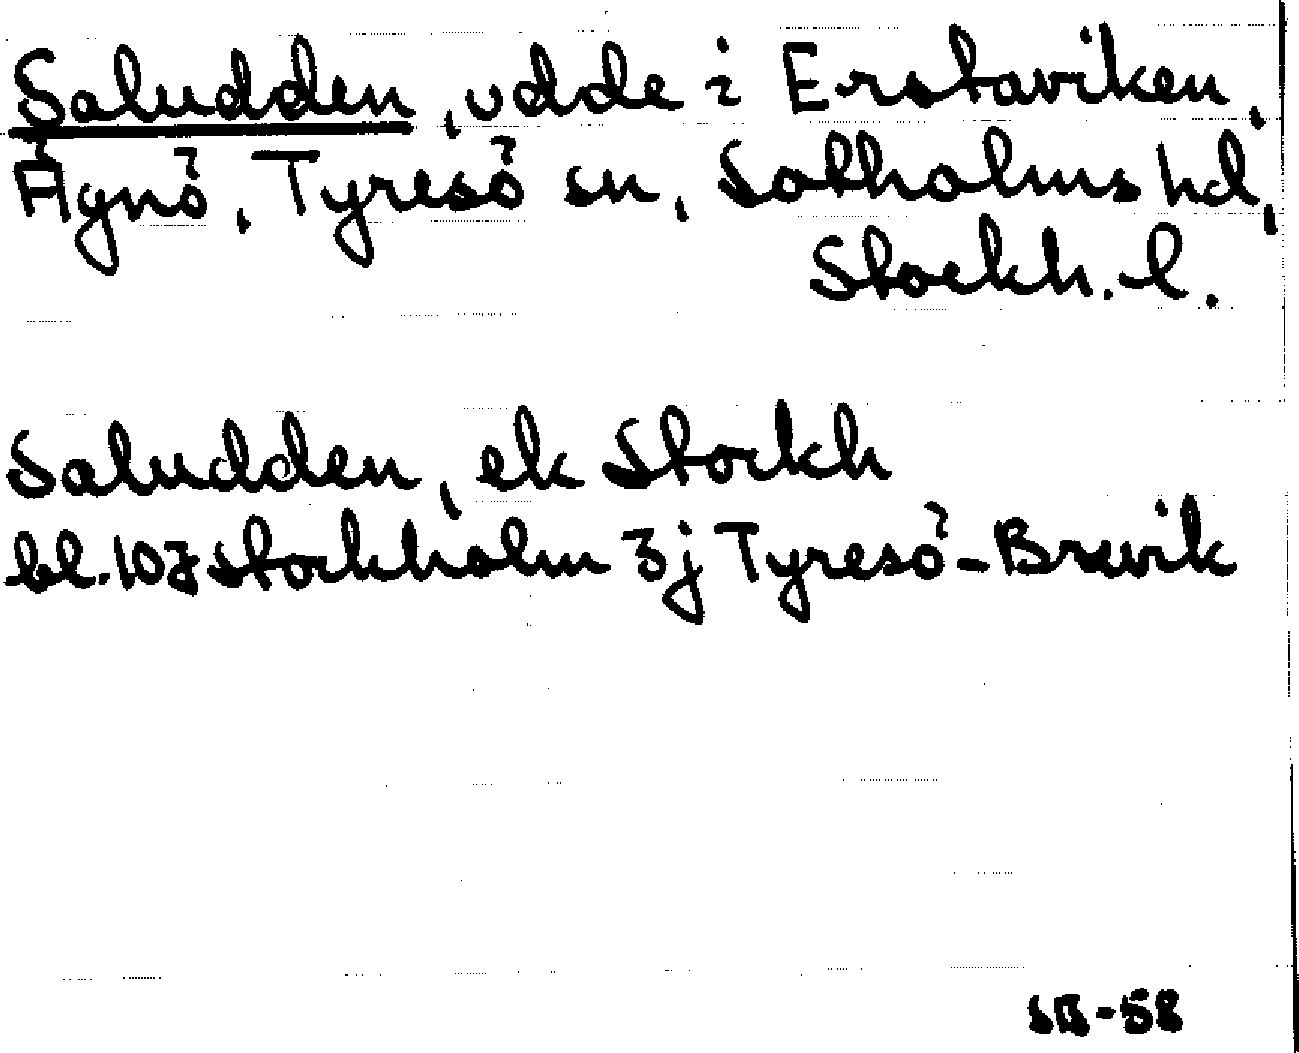 Saludden, udde i Erstaviken,
Ägnö, Tyresö sn, Sotholms hd,
Stockh. l.
Saludden, ek Stockh
bl. 10J Stockholm 3j Tyresö-Brevik
SB-58